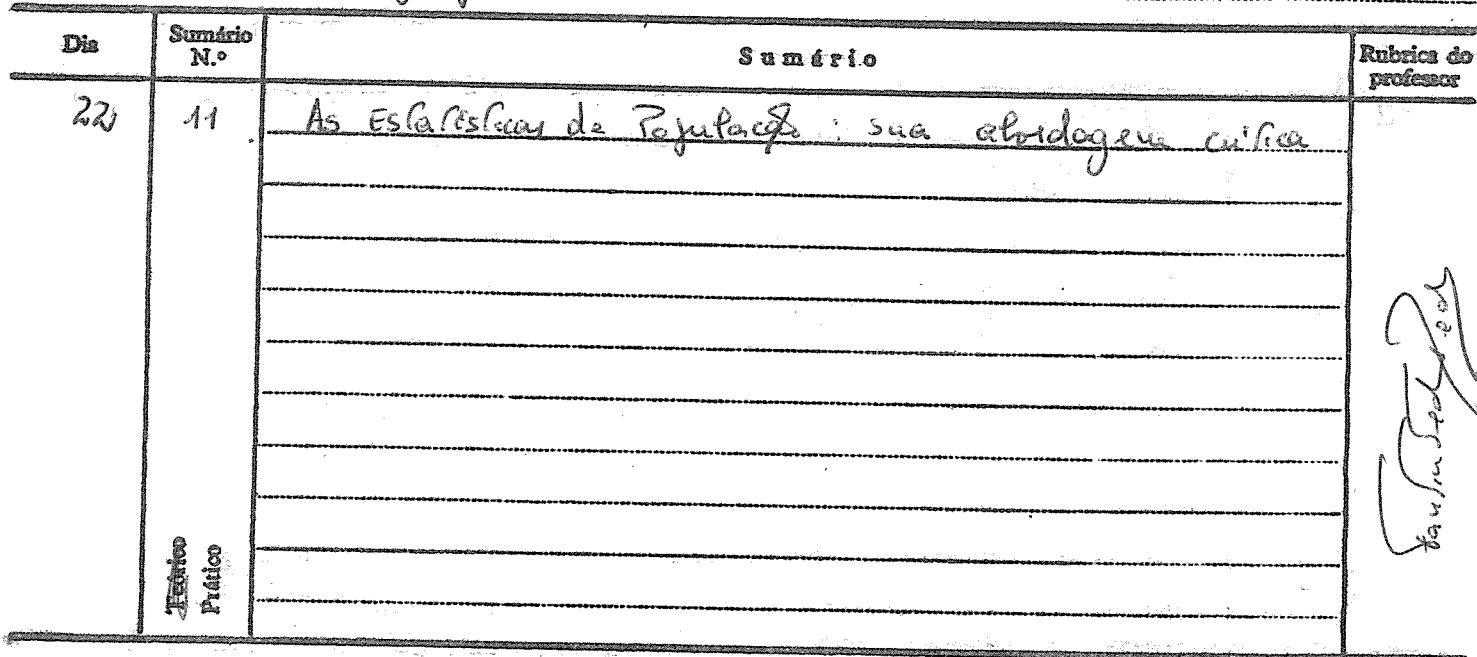 Dia
Sumário N.º
Sumário
Rubrica do professor
22
11
As Estatísticas da População : sua abordagem crítica
Teórico
Prático